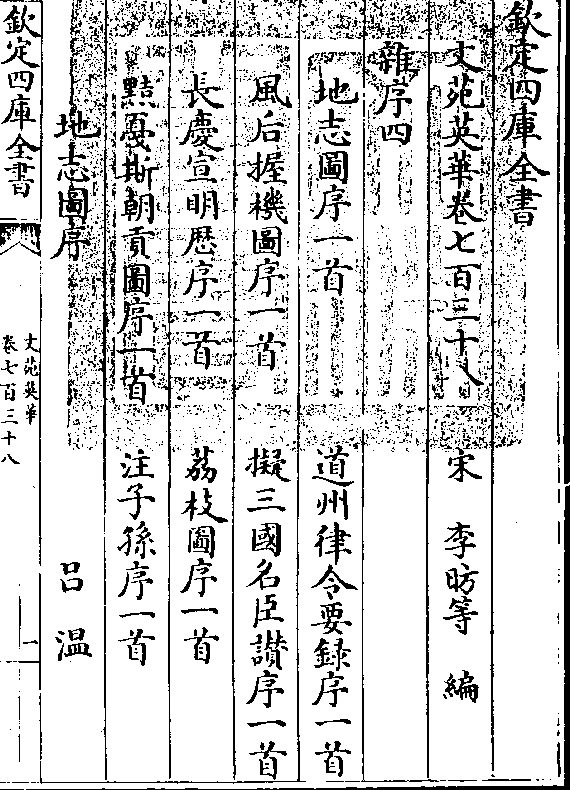 欽定四庫全書
文苑英華卷七百三十八
宋 李昉等 編
雜序四
地志圖序一首 道州律令要録序一首
風后握機圖序一首 擬三國名臣讃序一首
長慶宣明厯序一首 荔枝圖序一首
黠戛斯朝貢圖序一首 注子孫序一首
地志圖序 吕温
欽定四庫全書
文苑英華
卷七百三十八
一